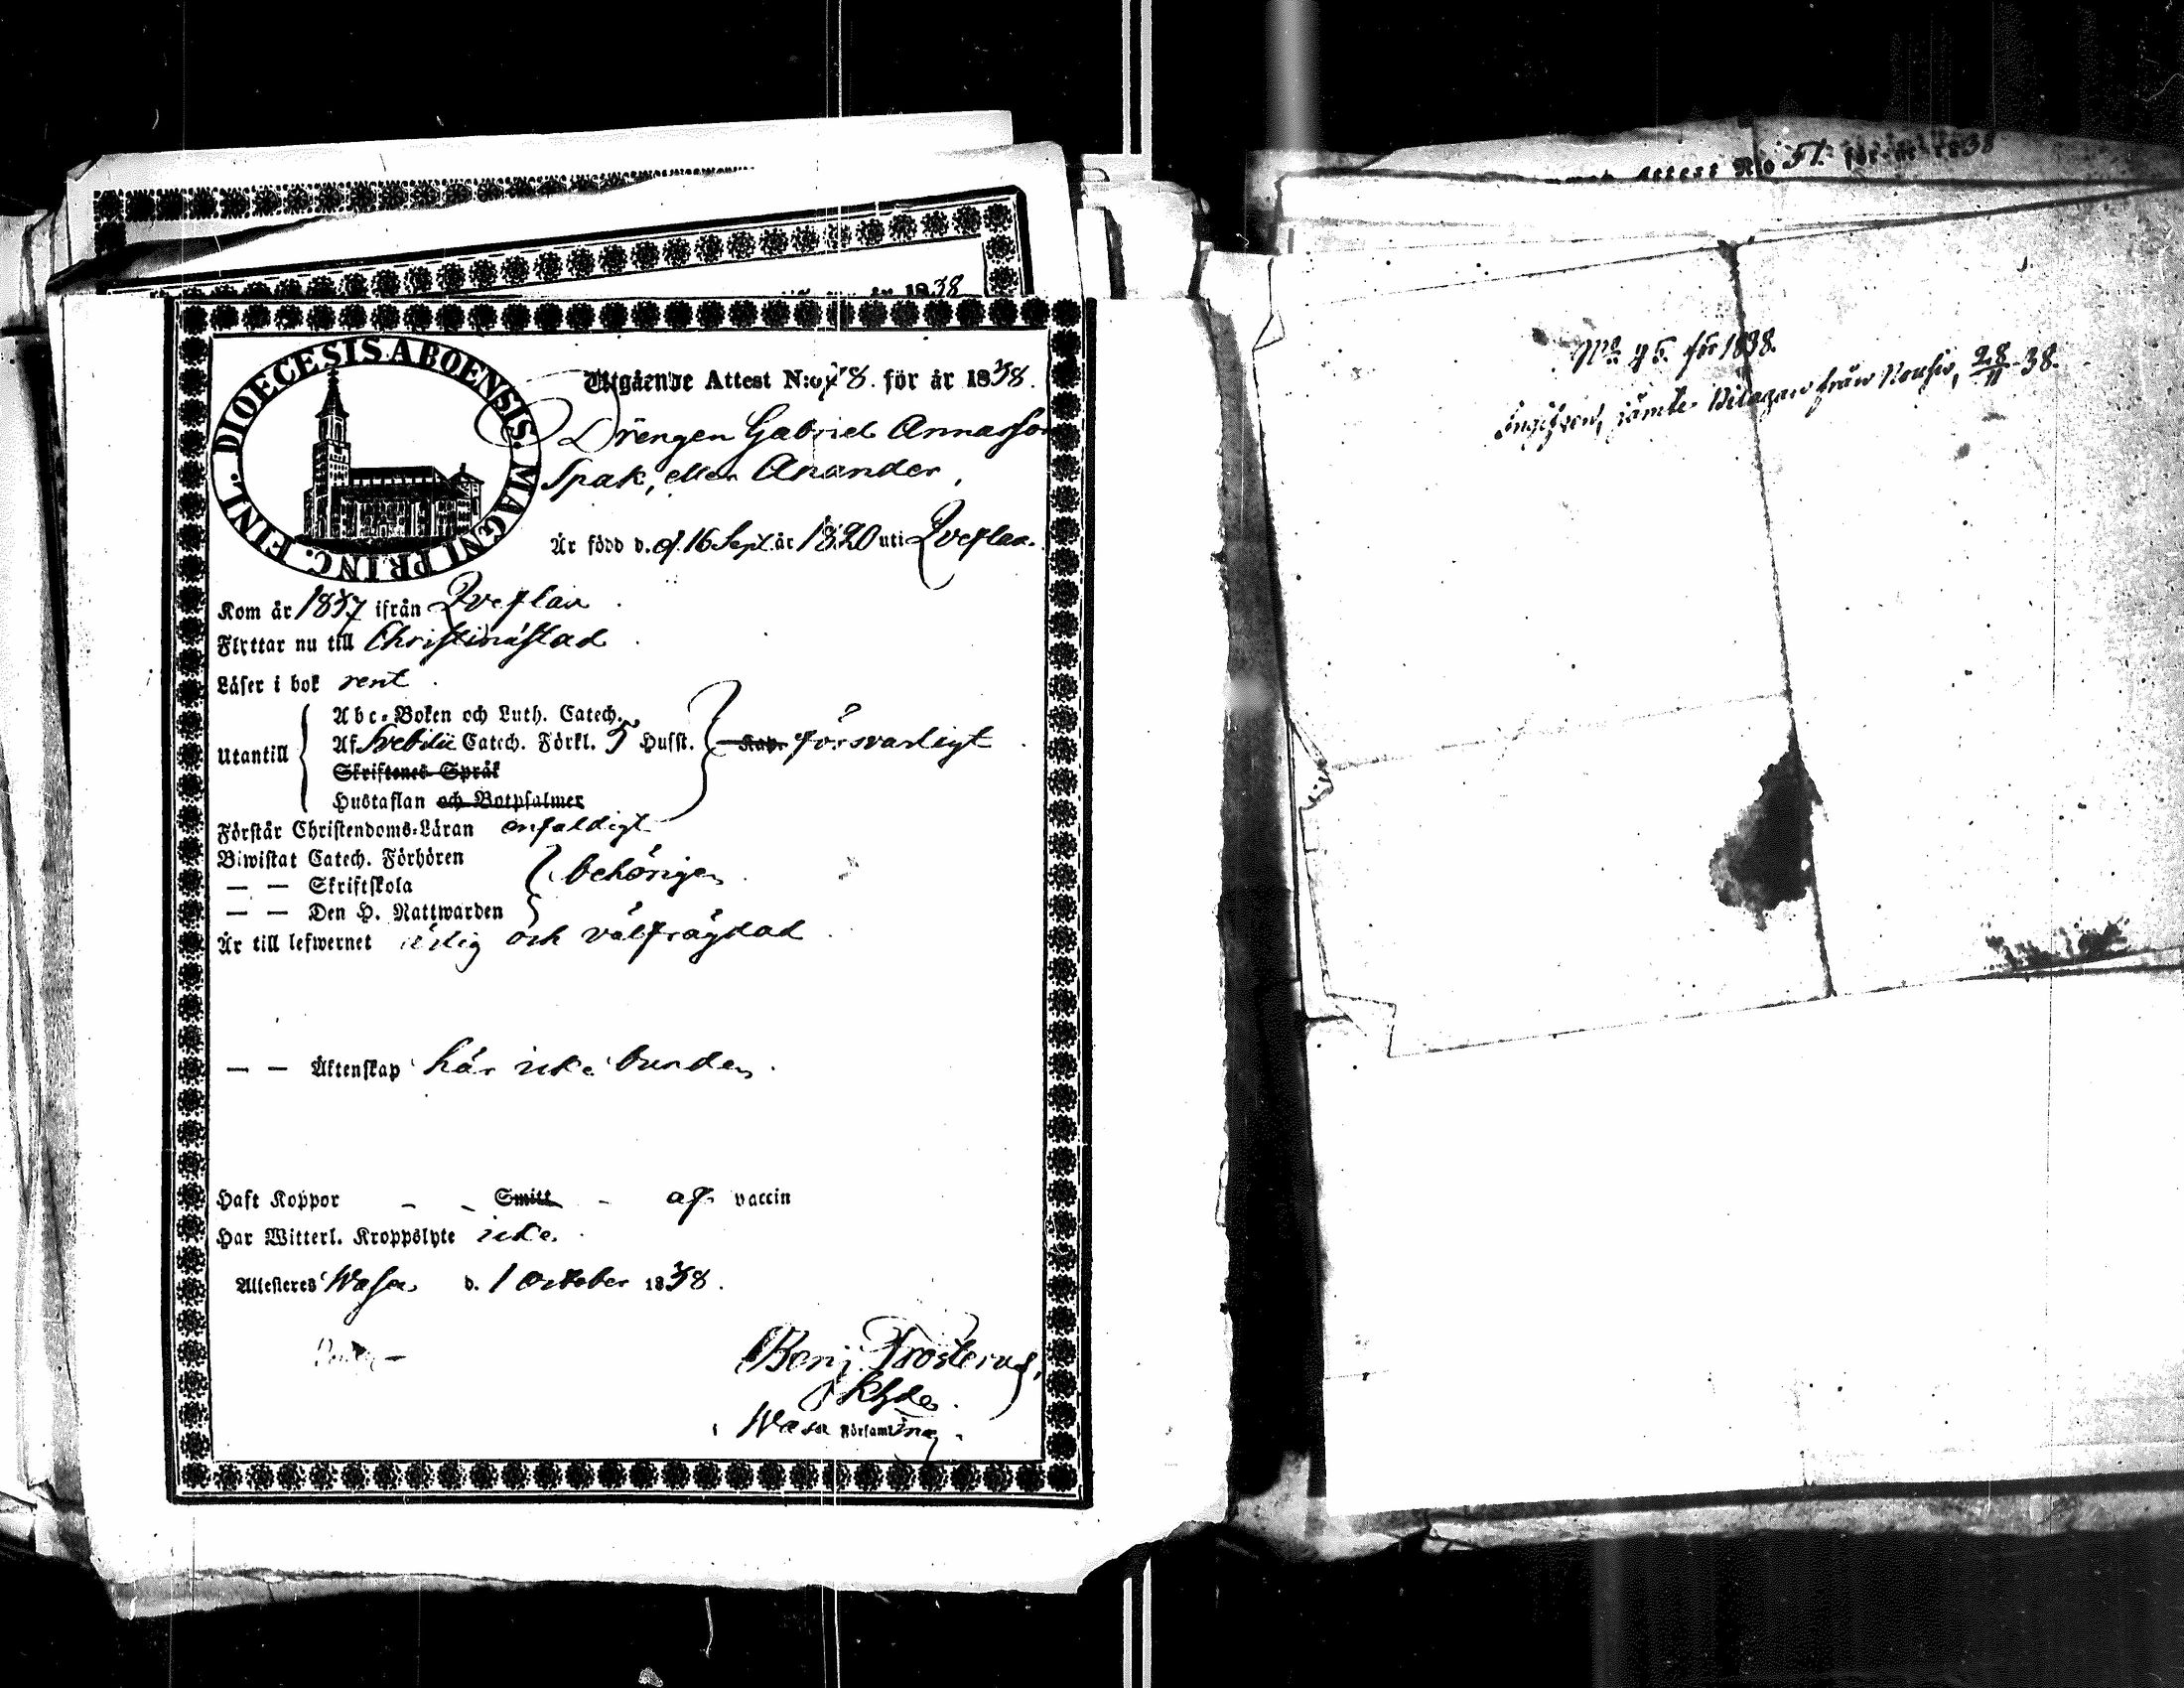 för år 1838
DIOECESIS ABOENSIS. MAGNI PRINC. FINL.
Utgående Attest N:o 78. för år 1838.
Drengen Gabriel Annasson
Spak, eller Anander,
Är född d. d. 16 Sept. år 1820 uti Qveflax.
Kom år 1837 ifrån Qveflax
Flyttar nu till Christinæstad
Läser i bok rent
Utantill
Abc-Boken och Luth. Catech.
Af Svebilii Catech. Förkl. 5 Hufst. Kap. försvarligt
Skriftenes Språk
Hustaflan och Botpsalmer
Förstår Christendoms-Läran enfaldigt
Biwistat Catech. Förhören
— — Skriftskola behörigen
— — Den H. Nattwarden
Är till lefwernet ärlig och välfrägdad
— — Äktenskap här icke bunden
Haft Koppor - - Smitt - af vaccin
Har Witterl. Kroppslyte icke
Attesteres Wasa d. 1 October 1838.
Benj. Frosterus,
i Wasa Församling.
Attest N:o 51. för år 1838
N:o 45. för 1838.
jämte Bilagan från 28/11 38.